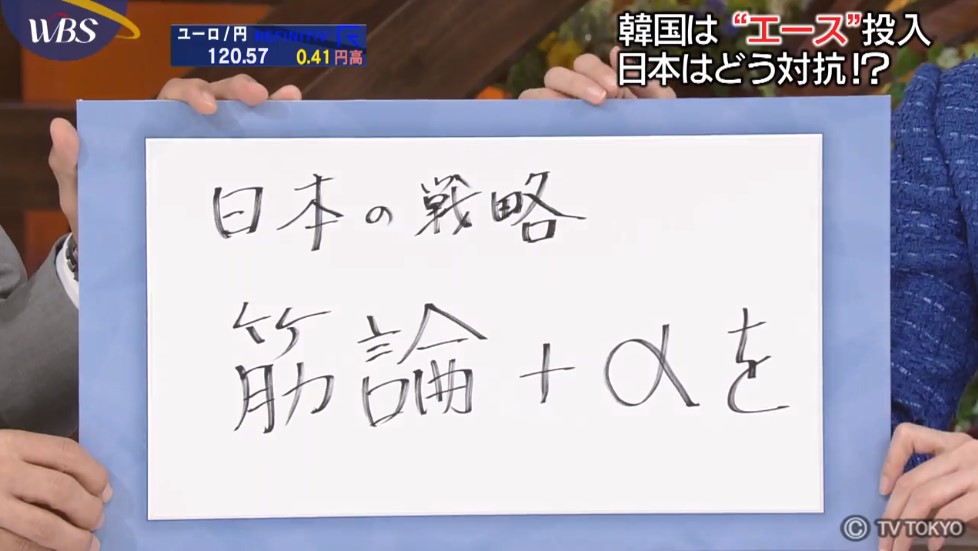 WBS
ユーロ/円
120.57 0.41円高
韓国は“エース”投入
日本はどう対抗!?
日本の戦略
筋論+αを
© TV TOKYO